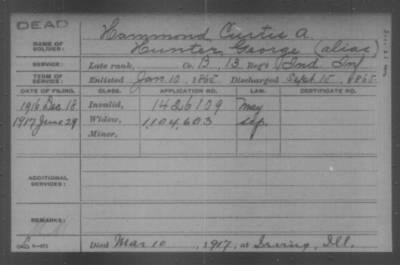 DEAD
NAME OF SOLDIER: Hammond Curtis A.
Hunter George (alias)
SERVICE: Late rank, Co. B, 13 Reg't Ind Inf
TERM OF SERVICE: Enlisted Jan. 12, 1865 Discharged Sept. 15, 1865
DATE OF FILING. CLASS. APPLICATION NO. LAW. CERTIFICATE NO.
1916 Dec. 18 Invalid, 1426109 May
1917 June 29 Widow, 1,104,603 Sep.
Minor,
ADDITIONAL SERVICES:
REMARKS:
Died Mar 10, 1917, at Irving, Ill.